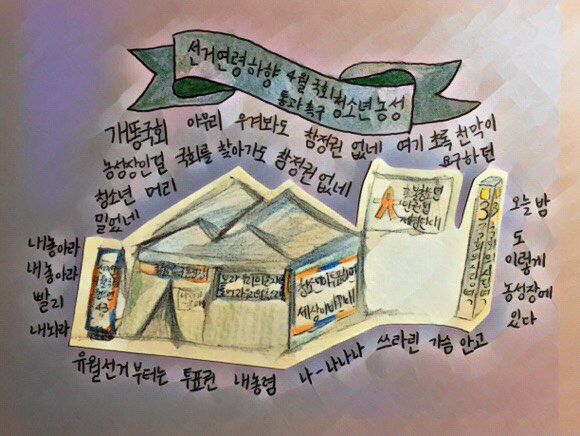 선거연령하향 4월 국회
통과 촉구 청소년 농성
개똥국회 아무리 우겨봐도 참정권 없네 여기 초록 천막이
농성장인걸 국회를 찾아가도 참정권 없네 요구하던
청소년 머리
밀었네
내놓아라
내놓아라
빨리
내놔라
청소년이 투표하면
세상이 바뀐다
3
국회의사당역
오늘 밤
도
이렇게
농성장에
있다
유월선거 부터는 투표권 내놓렴 나-나나나 쓰라린 가슴 안고